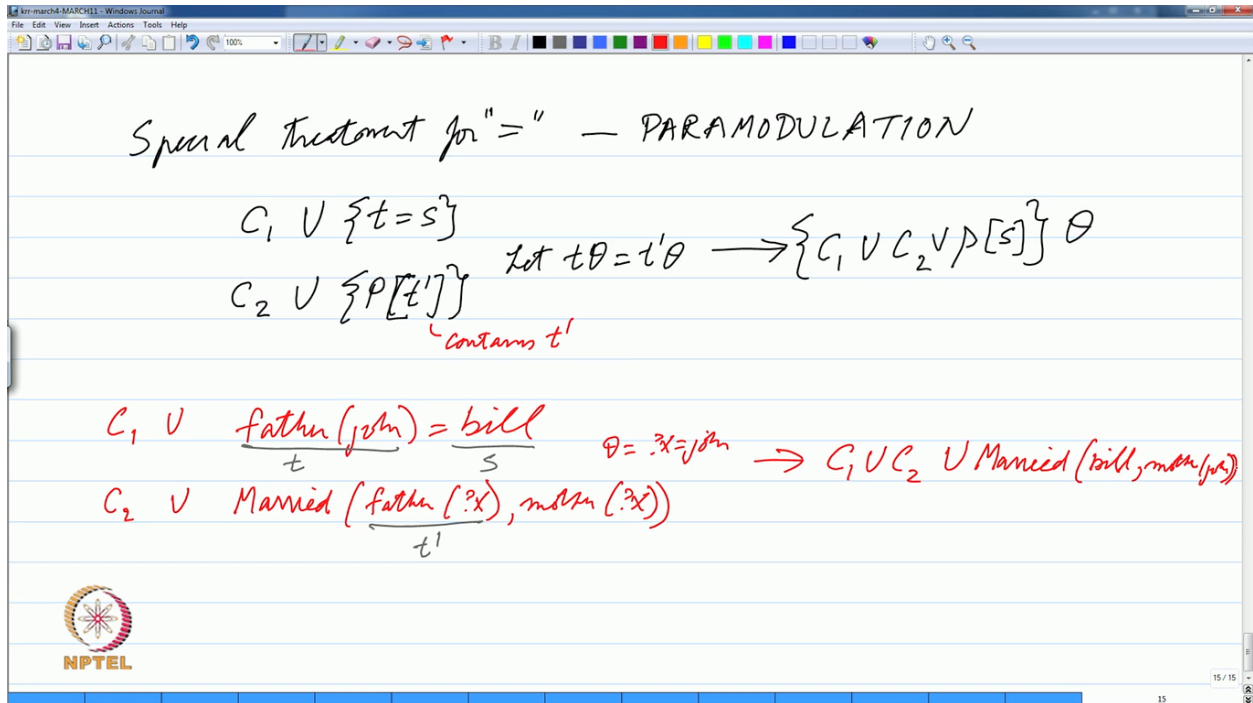 krr-march4-MARCH11 - Windows Journal
File Edit View Insert Actions Tools Help
100%
B I
Special treatment for "=" — PARAMODULATION
C₁ ∪ {t=s}
Let tθ = t'θ → {C₁ ∪ C₂ ∪ P[s]} θ
C₂ ∪ {P[t']}
contains t'
C₁ ∪ father(john) = bill
t s
θ = ?x=john → C₁ ∪ C₂ ∪ Married(bill, mother(john))
C₂ ∪ Married(father(?x), mother(?x))
t'
NPTEL
15 / 15
15